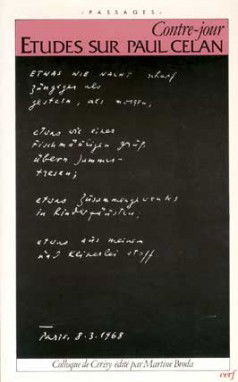 · PASSAGES ·
Contre-jour
ETUDES SUR PAUL CELAN
ETWAS WIE NACHT, scharf-
züngiger als
gestern, als morgen;
etwas wie einer
Fischmäuligen Gruß
übern Jammer-
tresen;
etwas Zusammengewehtes
in Kinderfäusten;
etwas aus meinem
und keinerlei Stoff.
Paris, 8.3.1968
Colloque de Cerisy édité par Martine Broda
cerf